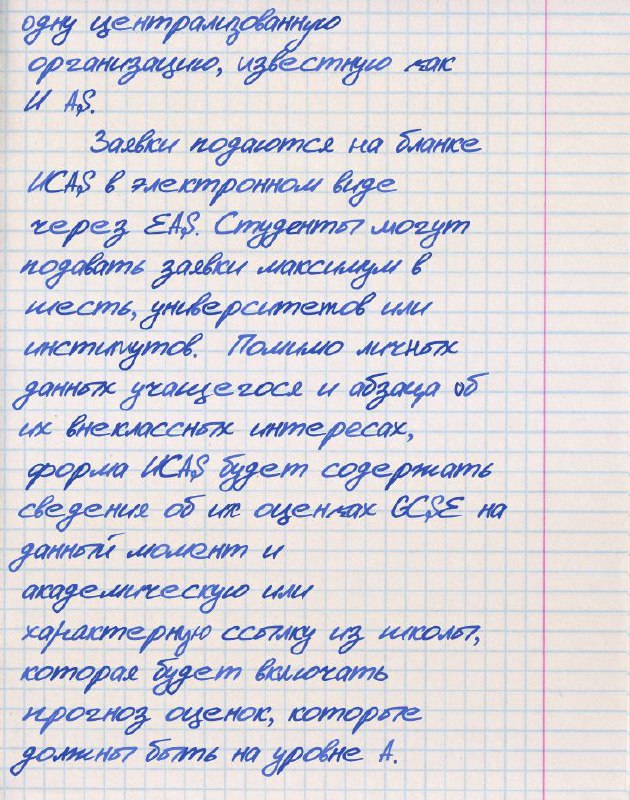 одну централизованную
организацию, известную как
И AS.
Заявки подаются на бланке
UCAS в электронном виде
через EAS. Студенты могут
подавать заявки максимум в
шесть, университетов или
институтов. Помимо личных
данных учащегося и абзаца об
их внеклассных интересах,
форма UCAS будет содержать
сведения об их оценках GCSE на
данный момент и
академическую или
характерную ссылку из школы,
которая будет включать
прогноз оценок, которые
должны быть на уровне А.